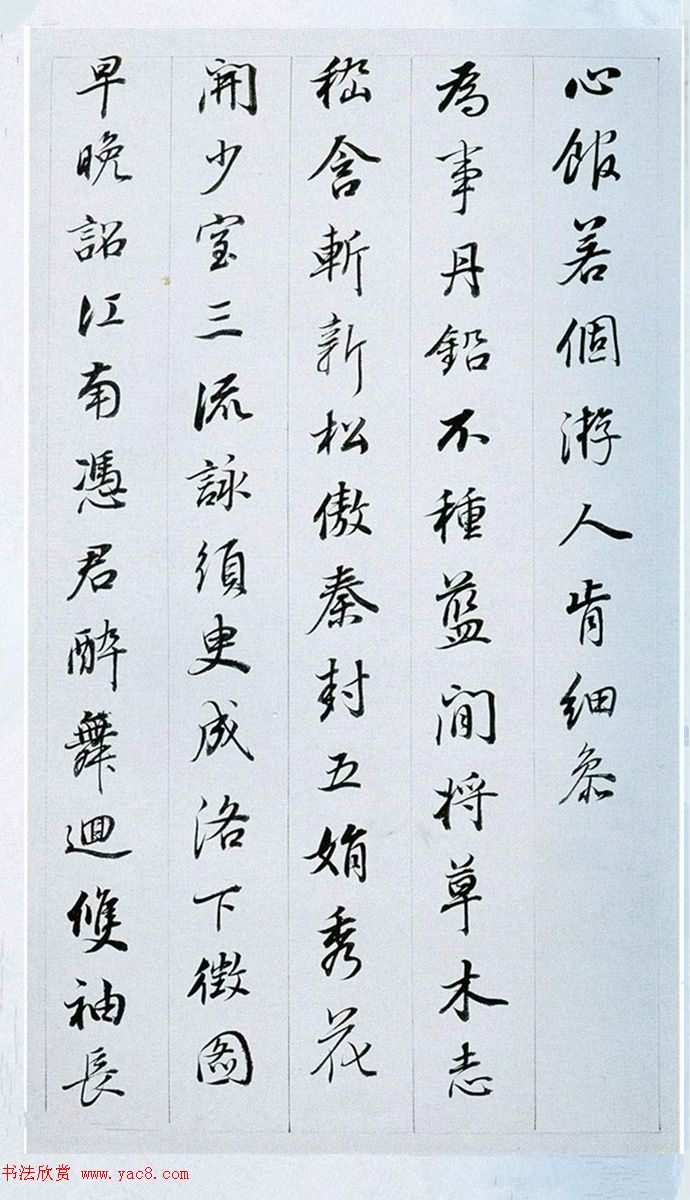 心腹若個游人肯細參
為事丹鉛不種藍間将草木志
嵇含斬新松傲秦封五娟秀花
開少室三流詠須史成洛下徴圖
早晚詔江南憑君醉舞迴雙袖長
书法欣赏 www.yac8.com